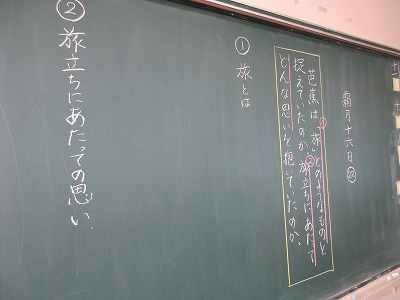 霜月十六日㊌
芭蕉は、「旅」①どのようなものと
捉えていたのか。②旅立ちにあたって
どんな思いを抱いていたのか。
①旅とは
②旅立ちにあたっての思い